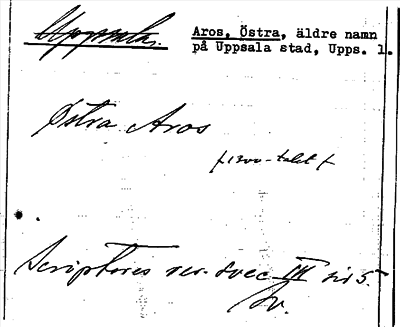 Uppsala.
Aros, Östra, äldre namn
på Uppsala stad, Upps. l.
Östra Aros
/1300-talet/
Scriptores rer. svec III sid 5.